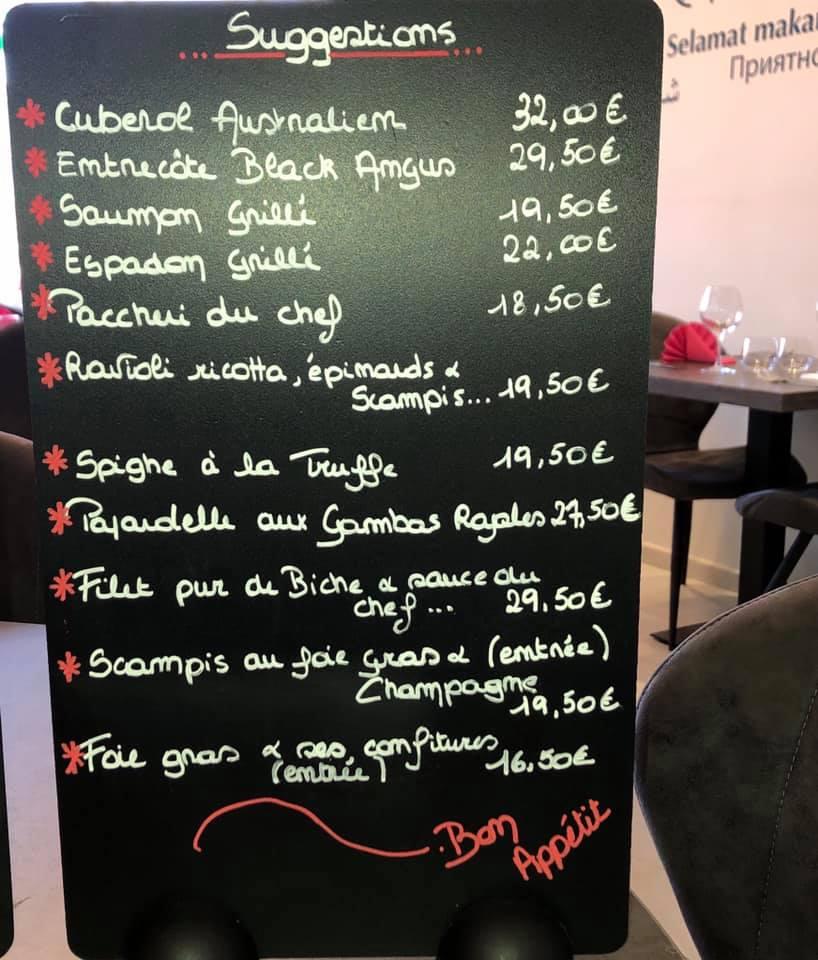 Suggestions
Cuberol Australien 32,00€
Entrecôte Black Angus 29,50€
Saumon Grillé 19,50€
Espadon Grillé 22,00€
Paccheri du chef 18,50€
Ravioli ricotta, épinards &
Scampis... 19,50€
Spighe à la Truffe 19,50€
Papardelle aux Gambas Royales 27,50€
Filet pur de Biche & sauce du
chef... 29,50€
Scampis au foie gras & (entrée)
Champagne 19,50€
Foie gras & ses confitures 16,50€
(entrée)
Bon
Appétit
Selamat maka
Приятно